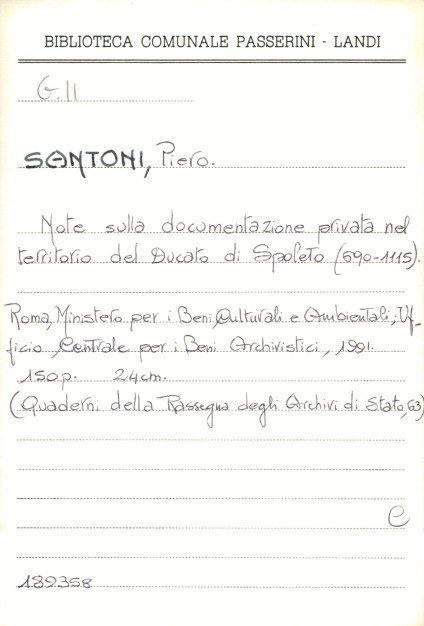 BIBLIOTECA COMUNALE PASSERINI - LANDI
G.II
SANTONI, Piero.
Note sulla documentazione privata nel
territorio del Ducato di Spoleto (690-1115).
Roma, Ministero per i Beni Culturali e Ambientali, Uf-
ficio Centrale per i Beni Archivistici, 1991.
150p. 24cm.
(Quaderni della Rassegna degli Archivi di Stato, 63)
e
189358